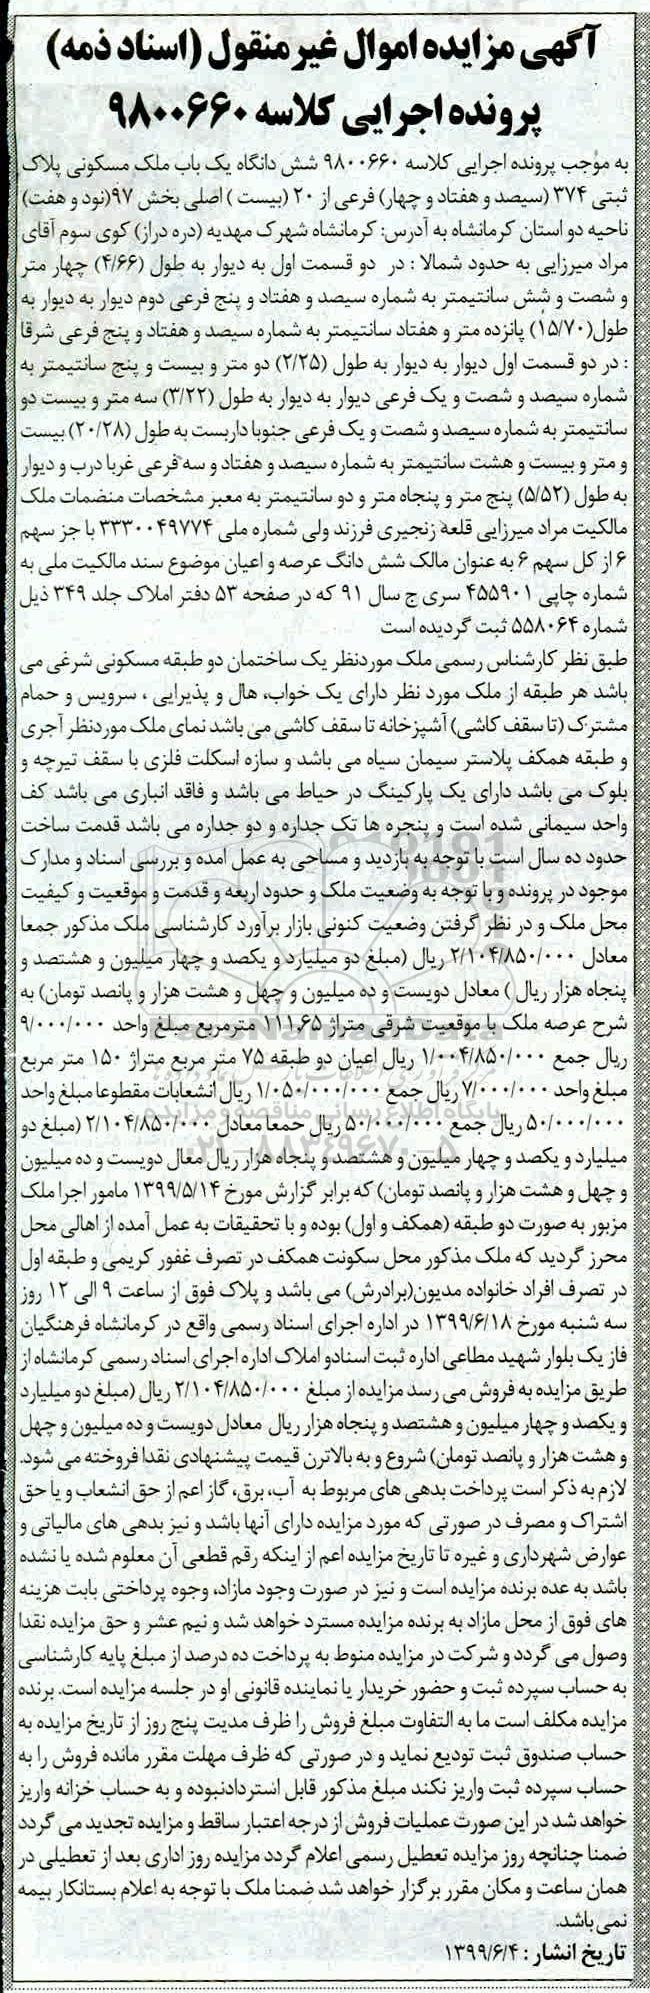 آگهی مزایده اموال غیر منقول (اسناد ذمه)
پرونده اجرایی کلاسه ۹۸۰۰۶۶۰
به موجب پرونده اجرایی کلاسه ۹۸۰۰۶۶۰ شش دانگاه یک باب ملک مسکونی پلاک
ثبتی ۳۷۴ (سیصد و هفتاد و چهار) فرعی از ۲۰ (بیست) اصلی بخش ۹۷(نود و هفت)
ناحیه دو استان کرمانشاه به آدرس: کرمانشاه شهرک مهدیه (دره دراز) کوی سوم آقای
مراد میرزایی به حدود شمالا : در دو قسمت اول به دیوار به طول (۴/۶۶) چهار متر
و شصت و شش سانتیمتر به شماره سیصد و هفتاد و پنج فرعی دوم دیوار به دیوار به
طول(۱۵/۷۰) پانزده متر و هفتاد سانتیمتر به شماره سیصد و هفتاد و پنج فرعی شرقا
: در دو قسمت اول دیوار به دیوار به طول (۲/۲۵) دو متر و بیست و پنج سانتیمتر به
شماره سیصد و شصت و یک فرعی دیوار به دیوار به طول (۳/۲۲) سه متر و بیست دو
سانتیمتر به شماره سیصد و شصت و یک فرعی جنوبا داربست به طول (۲۰/۲۸) بیست
و متر و بیست و هشت سانتیمتر به شماره سیصد و هفتاد و سه فرعی غربا درب و دیوار
به طول (۵/۵۲) پنج متر و پنجاه متر و دو سانتیمتر به معبر مشخصات منضمات ملک
مالکیت مراد میرزایی قلعه زنجیری فرزند ولی شماره ملی ۳۳۳۰۰۴۹۷۷۴ با جز سهم
۶ از کل سهم ۶ به عنوان مالک شش دانگ عرصه و اعیان موضوع سند مالکیت ملی به
شماره چاپی ۴۵۵۹۰۱ سری ج سال ۹۱ که در صفحه ۵۳ دفتر املاک جلد ۳۴۹ ذیل
شماره ۵۵۸۰۶۴ ثبت گردیده است
طبق نظر کارشناس رسمی ملک موردنظر یک ساختمان دو طبقه مسکونی شرغی می
باشد هر طبقه از ملک مورد نظر دارای یک خواب، هال و پذیرایی ، سرویس و حمام
مشترک (تا سقف کاشی) آشپزخانه تا سقف کاشی می باشد نمای ملک موردنظر آجری
و طبقه همکف پلاستر سیمان سیاه می باشد و سازه اسکلت فلزی با سقف تیرچه و
بلوک می باشد دارای یک پارکینگ در حیاط می باشد و فاقد انباری می باشد کف
واحد سیمانی شده است و پنجره ها تک جداره و دو جداره می باشد قدمت ساخت
حدود ده سال است با توجه به بازدید و مساحی به عمل امده و بررسی اسناد و مدارک
موجود در پرونده و با توجه به وضعیت ملک و حدود اربعه و قدمت و موقعیت و کیفیت
محل ملک و در نظر گرفتن وضعیت کنونی بازار برآورد کارشناسی ملک مذکور جمعا
معادل ۲/۱۰۴/۸۵۰/۰۰۰ ریال (مبلغ دو میلیارد و یکصد و چهار میلیون و هشتصد و
پنجاه هزار ریال ) معادل دویست و ده میلیون و چهل و هشت هزار و پانصد تومان) به
شرح عرصه ملک با موقعیت شرقی متراژ ۱۱۱،۶۵ مترمربع مبلغ واحد ۹/۰۰۰/۰۰۰
ریال جمع ۱/۰۰۴/۸۵۰/۰۰۰ ریال اعیان دو طبقه ۷۵ متر مربع متراژ ۱۵۰ متر مربع
مبلغ واحد ۷/۰۰۰/۰۰۰ ریال جمع ۱/۰۵۰/۰۰۰/۰۰۰ ریال انشعابات مقطوعا مبلغ واحد
۵۰/۰۰۰/۰۰۰ ریال جمع ۵۰/۰۰۰/۰۰۰ ریال جمعا معادل ۲/۱۰۴/۸۵۰/۰۰۰ (مبلغ دو
میلیارد و یکصد و چهار میلیون و هشتصد و پنجاه هزار ریال معال دویست و ده میلیون
و چهل و هشت هزار و پانصد تومان) که برابر گزارش مورخ ۱۳۹۹/۵/۱۴ مامور اجرا ملک
مزبور به صورت دو طبقه (همکف و اول) بوده و با تحقیقات به عمل آمده از اهالی محل
محرز گردید که ملک مذکور محل سکونت همکف در تصرف غفور کریمی و طبقه اول
در تصرف افراد خانواده مدیون(برادرش) می باشد و پلاک فوق از ساعت ۹ الی ۱۲ روز
سه شنبه مورخ ۱۳۹۹/۶/۱۸ در اداره اجرای اسناد رسمی واقع در کرمانشاه فرهنگیان
فاز یک بلوار شهید مطاعی اداره ثبت اسنادو املاک اداره اجرای اسناد رسمی کرمانشاه از
طریق مزایده به فروش می رسد مزایده از مبلغ ۲/۱۰۴/۸۵۰/۰۰۰ ریال (مبلغ دو میلیارد
و یکصد و چهار میلیون و هشتصد و پنجاه هزار ریال معادل دویست و ده میلیون و چهل
و هشت هزار و پانصد تومان) شروع و به بالاترن قیمت پیشنهادی نقدا فروخته می شود.
لازم به ذکر است پرداخت بدهی های مربوط به آب، برق، گاز اعم از حق انشعاب و یا حق
اشتراک و مصرف در صورتی که مورد مزایده دارای آنها باشد و نیز بدهی های مالیاتی و
عوارض شهرداری و غیره تا تاریخ مزایده اعم از اینکه رقم قطعی آن معلوم شده یا نشده
باشد به عده برنده مزایده است و نیز در صورت وجود مازاد، وجوه پرداختی بابت هزینه
های فوق از محل مازاد به برنده مزایده مسترد خواهد شد و نیم عشر و حق مزایده نقدا
وصول می گردد و شرکت در مزایده منوط به پرداخت ده درصد از مبلغ پایه کارشناسی
به حساب سپرده ثبت و حضور خریدار یا نماینده قانونی او در جلسه مزایده است. برنده
مزایده مکلف است ما به التفاوت مبلغ فروش را ظرف مدیت پنج روز از تاریخ مزایده به
حساب صندوق ثبت تودیع نماید و در صورتی که ظرف مهلت مقرر مانده فروش را به
حساب سپرده ثبت واریز نکند مبلغ مذکور قابل استردادنبوده و به حساب خزانه واریز
خواهد شد در این صورت عملیات فروش از درجه اعتبار ساقط و مزایده تجدید می گردد
ضمنا چنانچه روز مزایده تعطیل رسمی اعلام گردد مزایده روز اداری بعد از تعطیلی در
همان ساعت و مکان مقرر برگزار خواهد شد ضمنا ملک با توجه به اعلام بستانکار بیمه
نمی باشد.
تاریخ انتشار : ۱۳۹۹/۶/۴